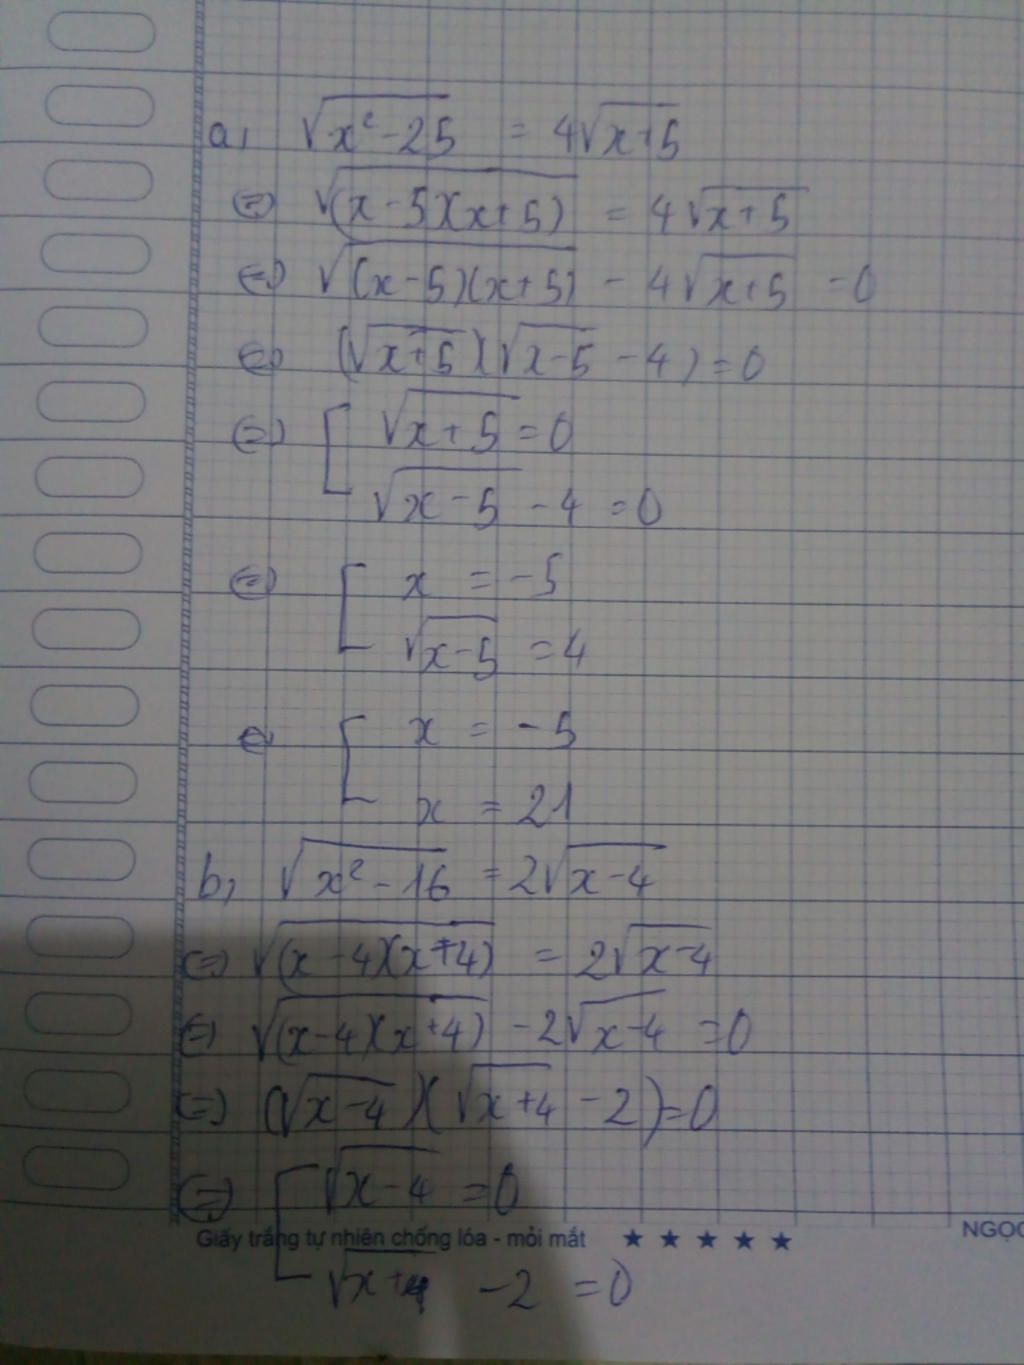 a, √(x² - 25) = 4√(x+5)
⇔ √((x - 5)(x + 5)) = 4√(x + 5)
⇔ √((x - 5)(x + 5)) - 4√(x+5) = 0
⇔ (√(x+5))(√(x-5) - 4) = 0
⇔ [ √(x + 5) = 0
√(x - 5) - 4 = 0
⇔ [ x = -5
√(x-5) = 4
⇔ [ x = -5
x = 21
b, √(x² - 16) = 2√(x-4)
⇔ √((x - 4)(x + 4)) = 2√(x-4)
⇔ √((x-4)(x+4)) - 2√(x-4) = 0
⇔ (√(x-4))(√(x+4) - 2) = 0
⇔ [ √(x-4) = 0
Giấy trắng tự nhiên chống lóa - mỏi mắt ★ ★ ★ ★ ★ NGỌC
√(x+4) - 2 = 0